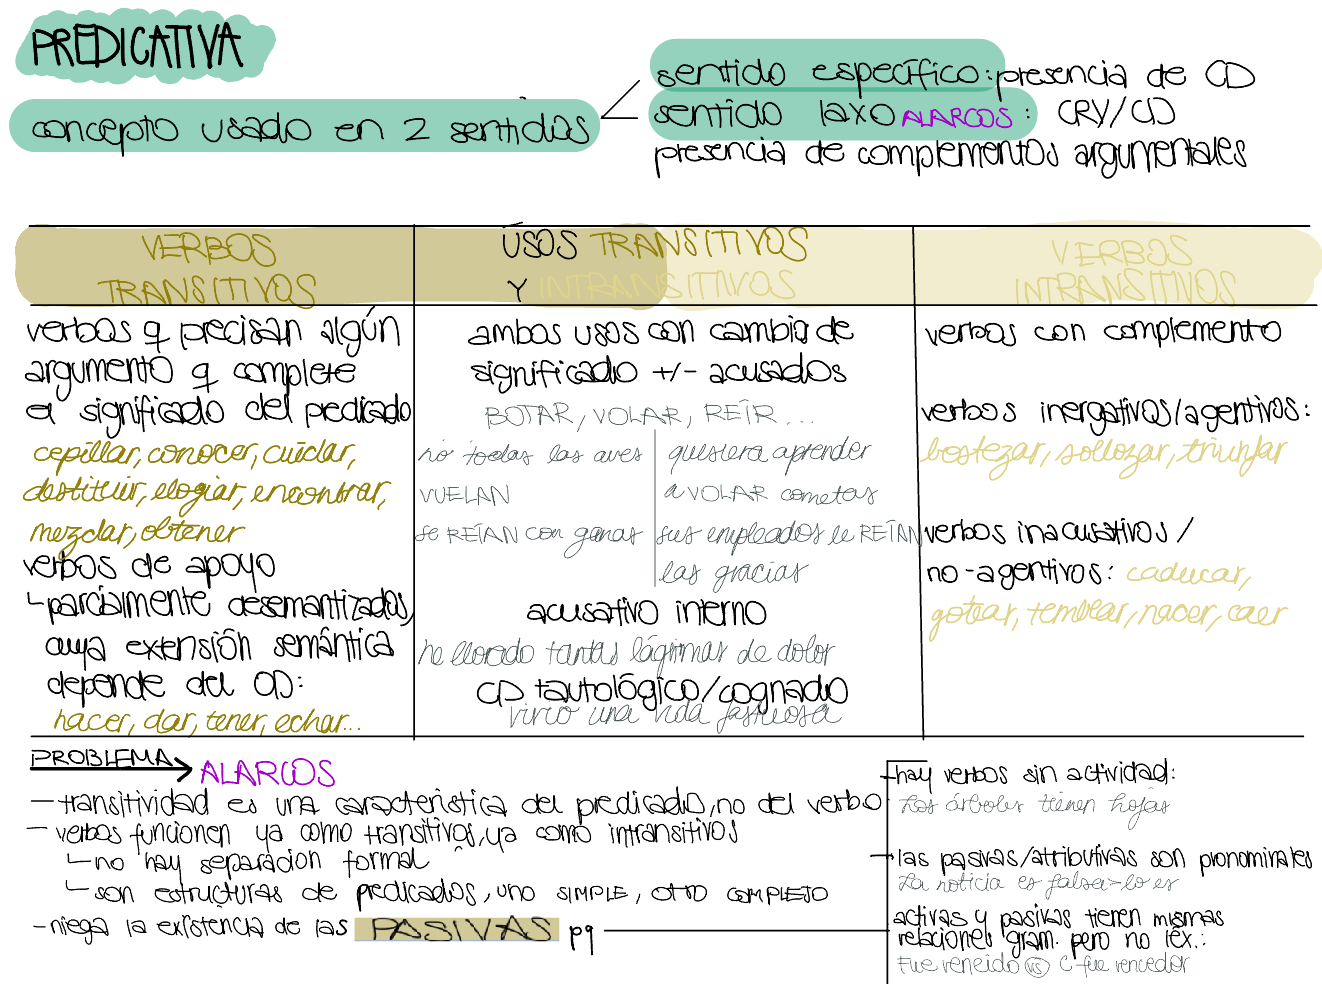 PREDICATIVA
concepto usado en 2 sentidos
sentido específico: presencia de CD
sentido laxo ALARCOS: CRV/CD
presencia de complementos argumentales
VERBOS
TRANSITIVOS
verbos q precisan algún
argumento q complete
el significado del predicado
cepillar, conocer, cuidar,
destituir, elogiar, encontrar,
mezclar, obtener
verbos de apoyo
parcialmente desemantizados,
cuya extensión semántica
depende del CD:
hacer, dar, tener, echar...
USOS TRANSITIVOS
Y INTRANSITIVOS
ambos usos con cambio de
significado +/- acusados
BOTAR, VOLAR, REÍR...
no todas las aves
VUELAN
se REÍAN con ganas
quisiera aprender
a VOLAR cometas
sus empleados le REÍAN
las gracias
acusativo interno
he llorado tantas lágrimas de dolor
CD tautológico/cognado
vivió una vida fastuosa
VERBOS
INTRANSITIVOS
verbos con complemento
verbos inergativos/agentivos:
bostezar, sollozar, triunfar
verbos inacusativos/
no-agentivos: caducar,
gotear, temblar, nacer, caer
PROBLEMA
ALARCOS
- transitividad es una característica del predicado, no del verbo
- verbos funcionen ya como transitivos, ya como intransitivos
no hay separación formal
son estructuras de predicados, uno SIMPLE, otro COMPLEJO
- niega la existencia de las PASIVAS pq
hay verbos sin actividad:
Los árboles tienen hojas
las pasivas/atributivas son pronominales
La noticia es falsa > lo es
activas y pasivas tienen mismas
relaciones gram. pero no léx.:
Fue vencido vs C fue vencedor